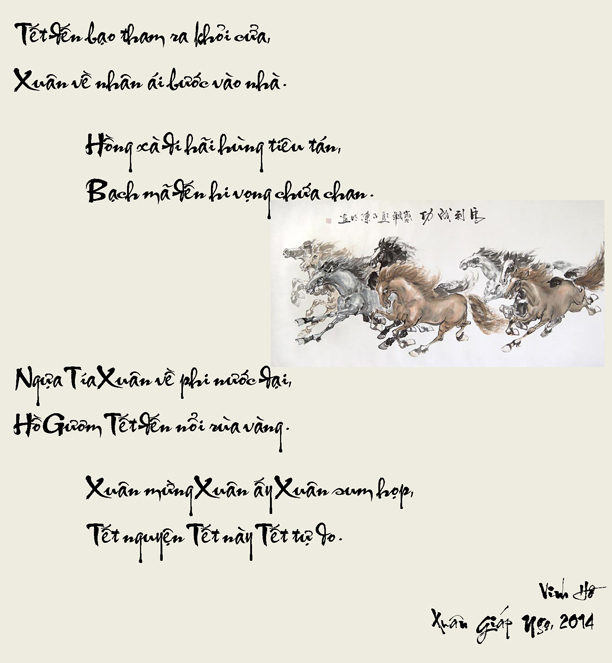 Tết đến bạo tham ra khỏi cửa,
Xuân về nhân ái bước vào nhà.
Hồng xà đi hãi hùng tiêu tán,
Bạch mã đến hi vọng chứa chan.
馬到成功
Ngựa Tía Xuân về phi nước đại,
Hồ Gươm Tết đến nổi rùa vàng.
Xuân mừng Xuân ấy Xuân sum họp,
Tết nguyện Tết này Tết tự do.
Vinh Hồ
Xuân Giáp Ngọ, 2014